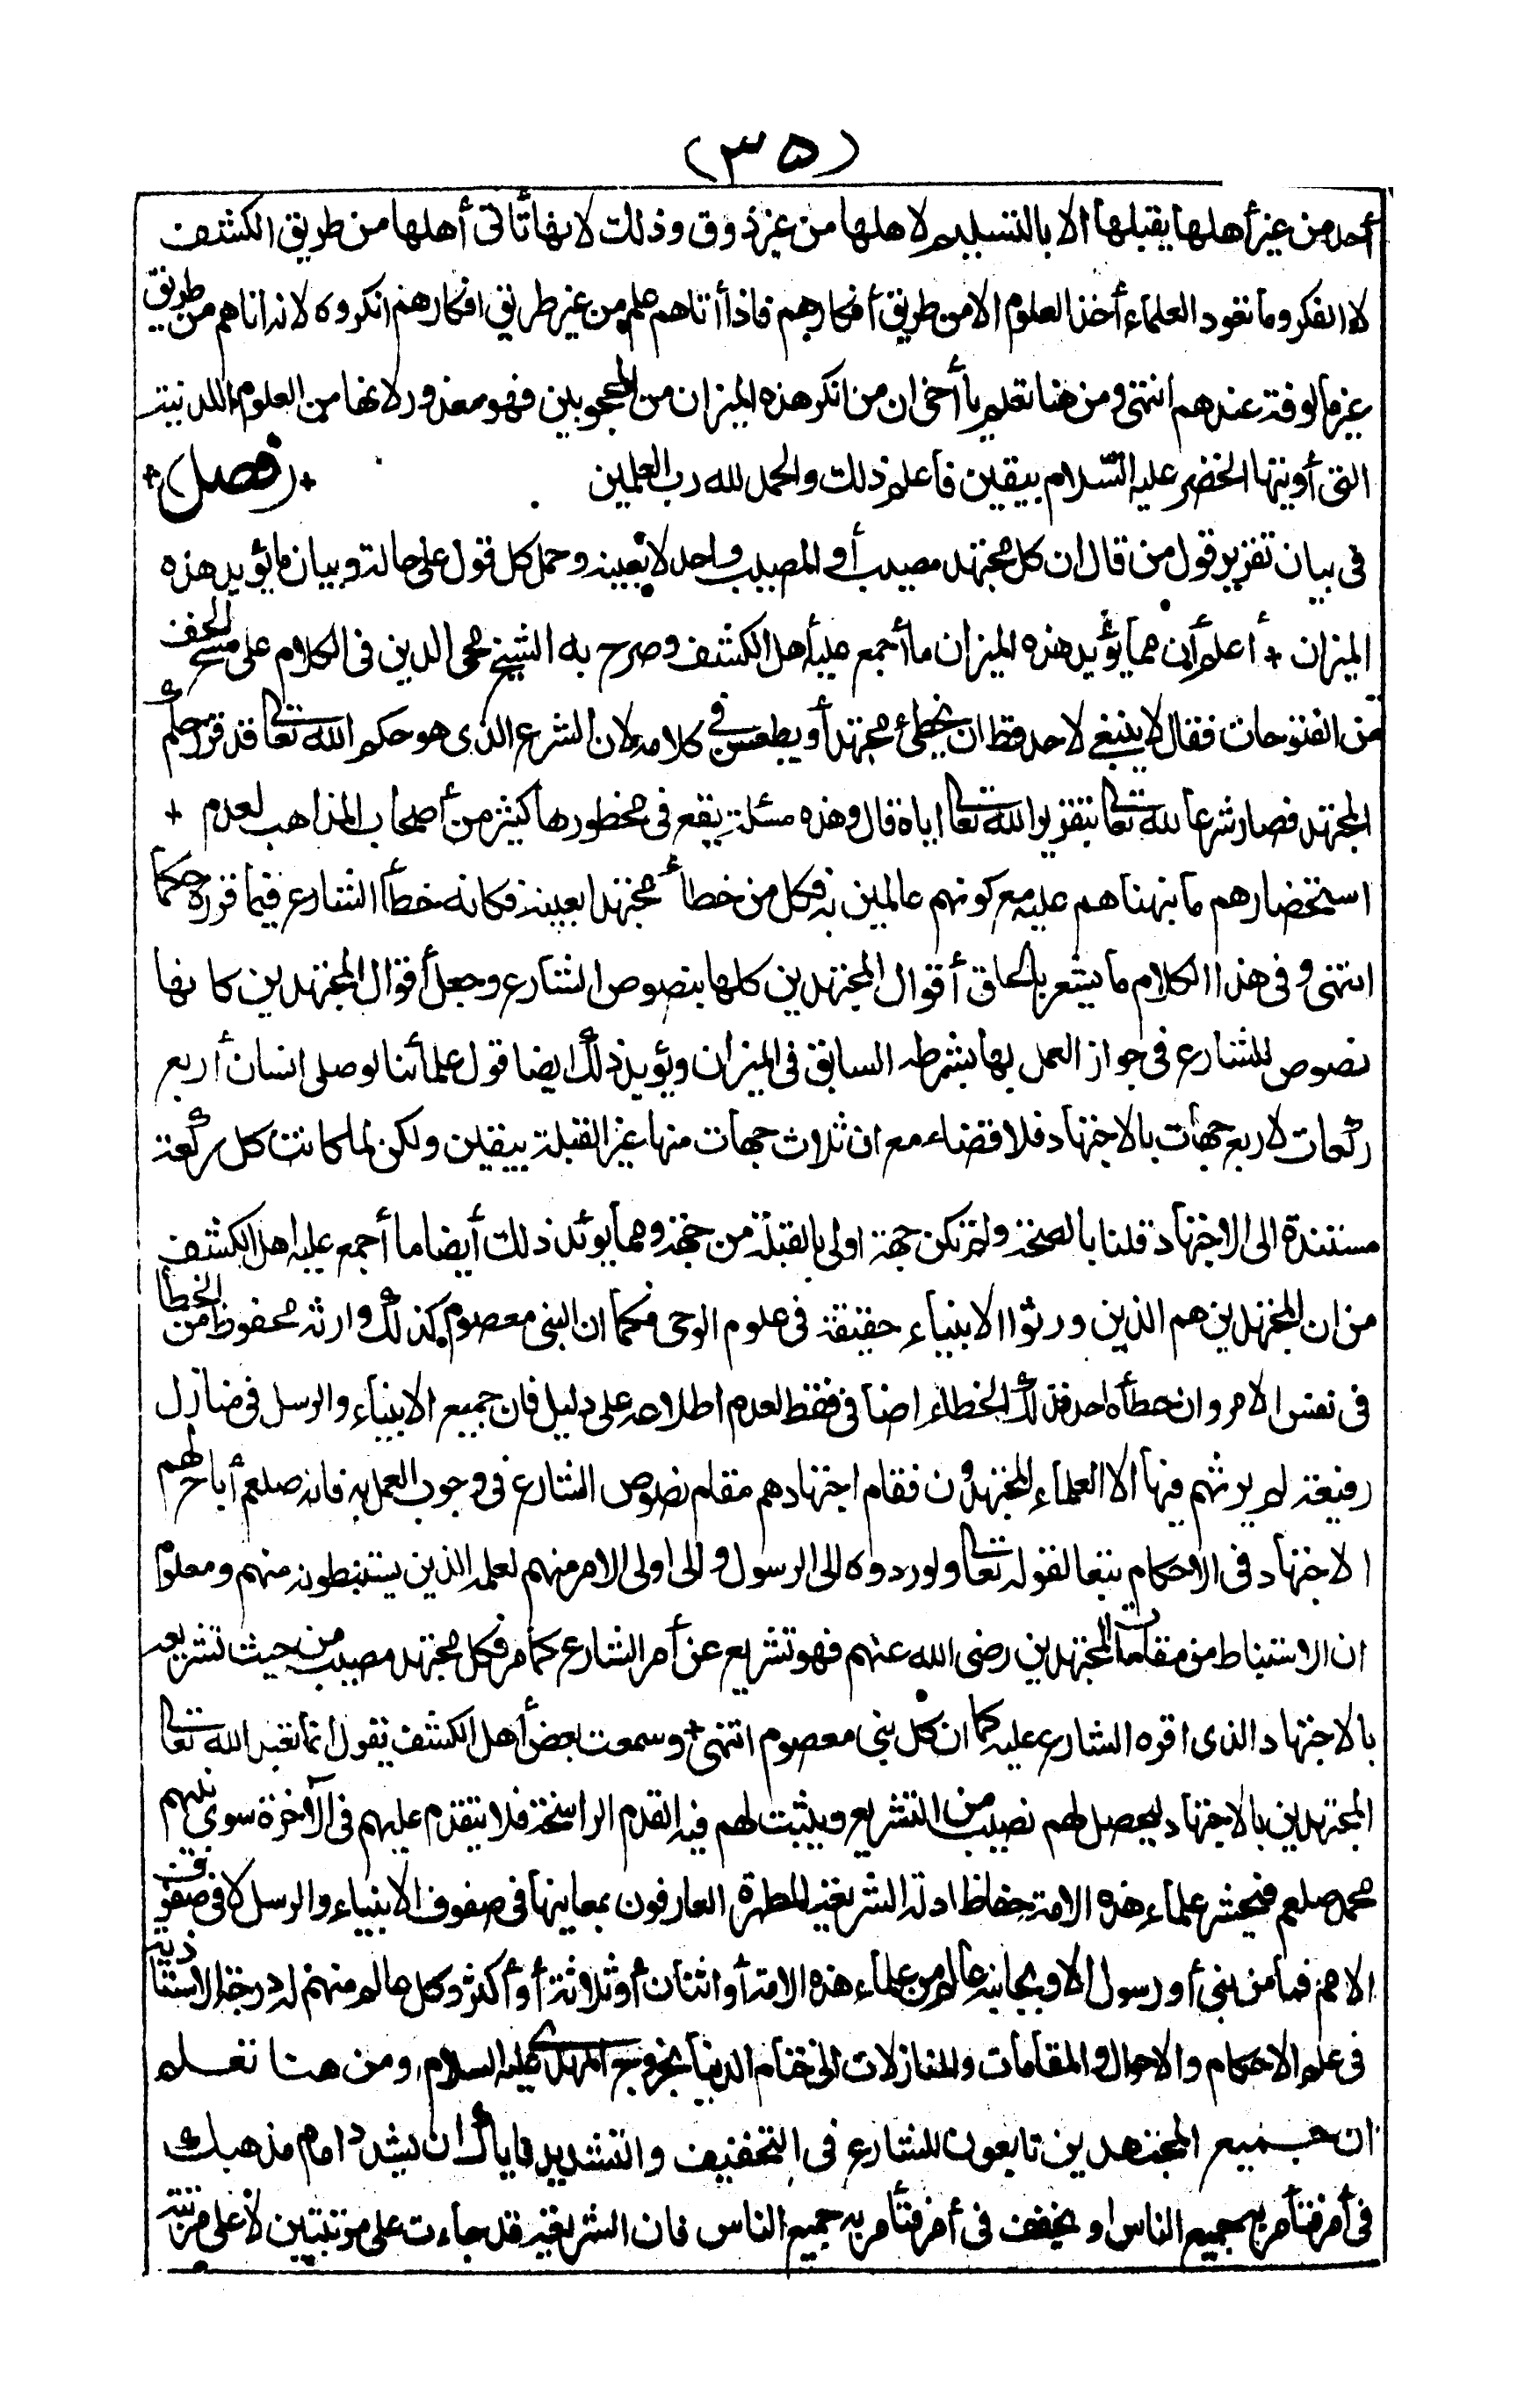 (٣٥)
أحد من غير أهلها يقبلها الا بالتسليم لاهلها من غير ذوق وذلك لانها تأتى أهلها من طريق الكشف
لا الفكر وما تعود العلماء أخذ العلوم الا من طريق أفكارهم فاذا أتاهم علم من غير طريق افكارهم انكروه لانه اتاهم من طريق
غير مالوفة عندهم انتهى ومن هنا تعلم يا أخى ان من انكر هذه الميزان من المحجوبين فهو معذور لانها من العلوم اللدنية
التى أوتيها الخضر عليه السلام بيقين فاعلم ذلك والحمد لله رب العلمين + (فصل) +
فى بيان تقرير قول من قال ان كل مجتهد مصيب أو المصيب واحد لا بعينه وحمل كل قول على حالة وبيان ما يؤيد هذه
الميزان + أعلم أن مما يؤيد هذه الميزان ما أجمع عليه أهل الكشف وصرح به الشيخ محى الدين فى الكلام على مسح الخف
من الفتوحات فقال لا ينبغى لاحد قط ان يخطئ مجتهدا أو يطعن فى كلامه لان الشرع الذى هو حكم الله تعالى قد قرر حكم
المجتهد فصار شرعا لله تعالى بتقرير الله تعالى اياه قال وهذه مسئلة يقع فى محظورها كثير من أصحاب المذاهب لعدم +
استحضارهم ما نبهناهم عليه مع كونهم عالمين به فكل من خطأ مجتهدا بعينه فكانه خطأ الشارع فيما قرره حكما
انتهى وفى هذا الكلام ما يشعر بالحاق أقوال المجتهدين كلها بنصوص الشارع وجعل أقوال المجتهدين كانها
نصوص للشارع فى جواز العمل بها بشرطه السابق فى الميزان ويؤيد ذلك ايضا قول علمائنا لو صلى انسان أربع
ركعات لاربع جهات بالاجتهاد فلا قضاء مع ان ثلاث جهات منها غير القبلة بيقين ولكن لما كانت كل ركعة
مستندة الى الاجتهاد قلنا بالصحة ولم تكن جهة اولى بالقبلة من جهة ومما يؤيد ذلك أيضا ما أجمع عليه اهل الكشف
من ان المجتهدين هم الذين ورثوا الانبياء حقيقة فى علوم الوحى فكما ان النبى معصوم كذلك وارثه محفوظ من الخطأ
فى نفس الامر وان خطأه احد فذلك الخطاء اضافى فقط لعدم اطلاعه على دليل فان جميع الانبياء والرسل فى منازل
رفيعة لم يرثهم فيها الا العلماء المجتهدون فقام اجتهادهم مقام نصوص الشارع فى وجوب العمل به فانه صلعم أباح لهم
الاجتهاد فى الاحكام تبعا لقوله تعالى ولو ردوه الى الرسول والى اولى الامر منهم لعلمه الذين يستنبطونه منهم ومعلوم
ان الاستنباط من مقامات المجتهدين رضى الله عنهم فهو تشريع عن أمر الشارع كما مر فكل مجتهد مصيب من حيث تشريعه
بالاجتهاد الذى اقره الشارع عليه كما ان كل نبى معصوم انتهى + وسمعت بعض أهل الكشف يقول انما تعبد الله تعالى
المجتهدين بالاجتهاد ليحصل لهم نصيب من التشريع ويثبت لهم فيه القدم الراسخة فلا يتقدم عليهم فى الآخرة سوى نبيهم
محمد صلعم فيحشر علماء هذه الامة حفاظ ادلة الشريعة المطهرة العارفون بمعانيها فى صفوف الانبياء والرسل لا فى صفوف
الامم فما من نبى أو رسول الا وبجانبه عالم من علماء هذه الامة أو اثنان أو ثلاثة أو أكثر وكل عالم منهم له درجة الاستاذية
فى علم الاحكام والاحوال والمقامات والمنازلات الى ختام الدنيا بخروج المهدى عليه السلام ومن هنا تعلم
ان جميع المجتهدين تابعون للشارع فى التخفيف والتشديد فاياك ان يشدد امام مذهبك
فى أمر فتأمر به جميع الناس او يخفف فى أمر فتأمر به جميع الناس فان الشريعة قد جاءت على مرتبتين لا على مرتبة